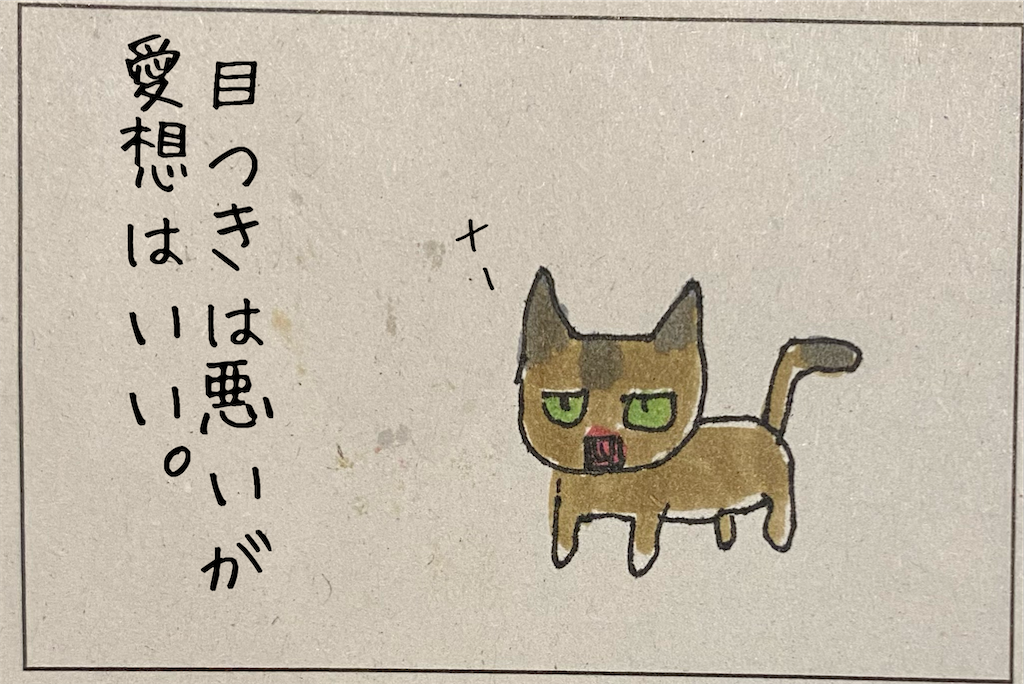 目つきは悪いが
愛想はいい。
ナー